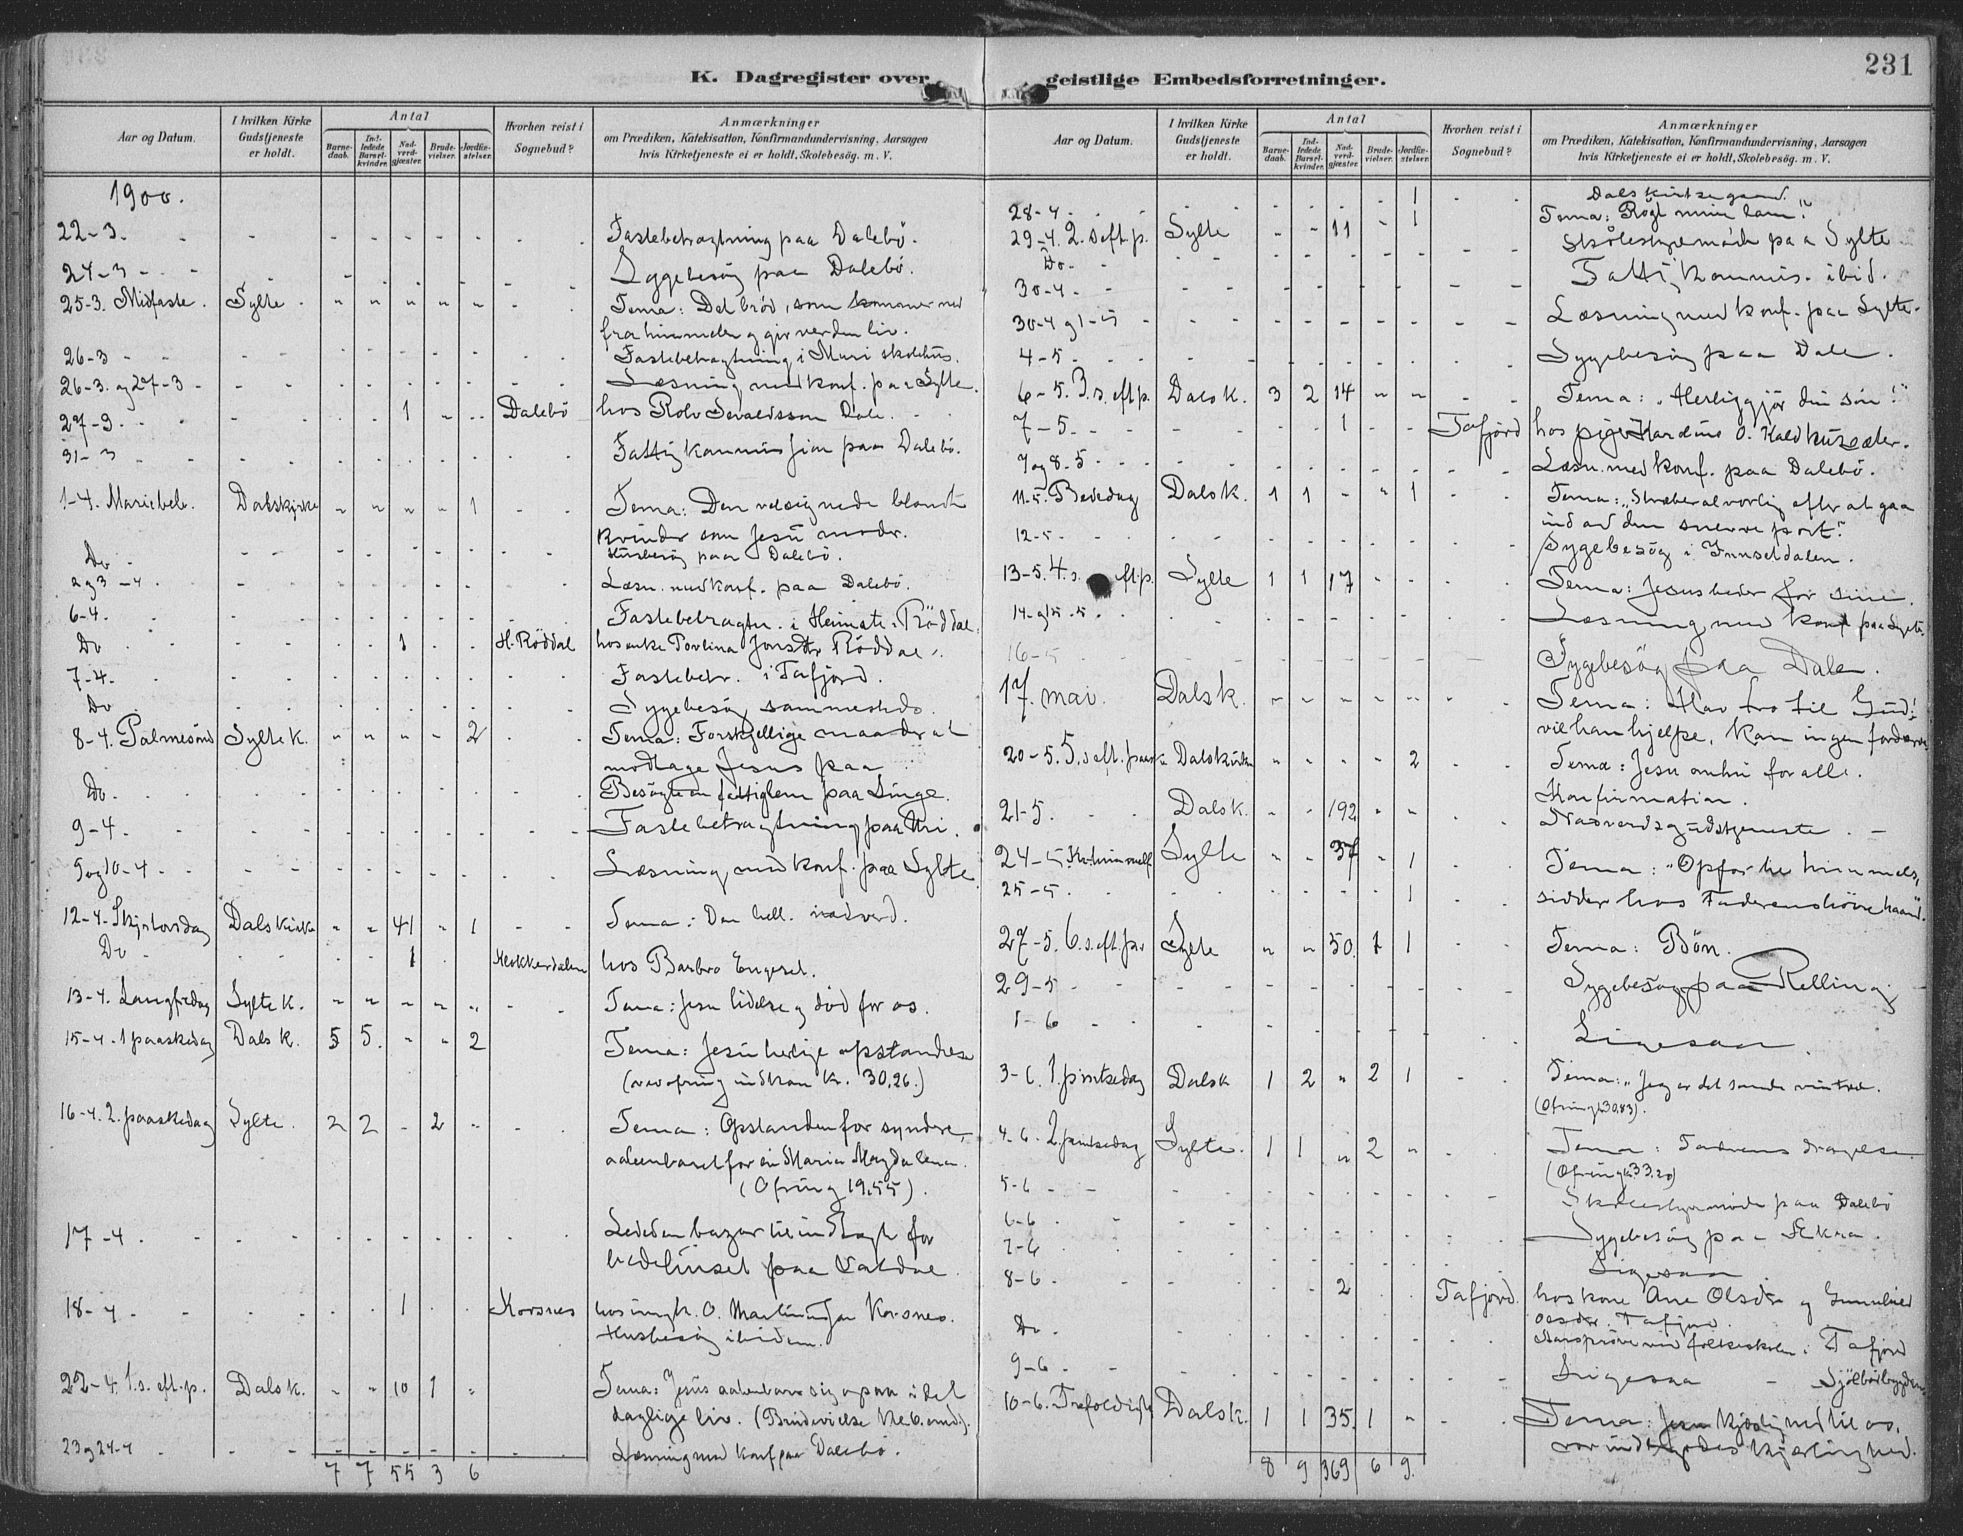 231
K. Dagregister over geistlige Embedsforretninger.
Aar og Datum.
I hvilken Kirke Gudstjeneste er holdt.
Antal
Barne-daab.
Ind-ledede Barsel-kvinder.
Nad-verd-gjæster.
Brude-vielser.
Jordfæ-stelser.
Hvorhen reist i Sognebud?
Anmærkninger
om Prædiken, Katekisation, Konfirmandundervisning, Aarsagen
hvis Kirketjeneste ei er holdt, Skolebesøg. m. V.
1900.
22-3. Fastebetragtning paa Dalebö.
24-3 Sygebesög paa Dalebö.
25-3. Midfaste. Sylte. Tema: Det bröd, som kommer ned
fra himmelen og gir verden liv.
26-3 Fastebetragtning i Muri skolehus.
26-3. og 27-3 Læsning med konf. paa Sylte.
27-3 1 Dalebö hos Rolv Sevaldsson Dale.
31-3 Fattigkommission paa Dalebö.
1-4. Mariebeb. Dalskirke 1 Tema: Den velsignede blandt
kvinder som Jesu moder.
Do Husbesög paa Dalebö.
2 og 3-4 Læsn. med konf. paa Dalebö.
6-4. Fastebetragtn. i Heimste Röddal.
Do 1 H. Röddal hos enke Jonsdtr Röddal.
7-4. Fastebetr. i Tafjord.
Do Sygebesög sammesteds.
8-4. Palmesönd Sylte k. 2 Tema: Forskjellige maader at
modtage Jesus paa
Do. Besögte en fattiglem paa Linge.
9-4. Fastebetragtning paa Uri.
9 og 10-4 Læsning med konf. paa Sylte.
12-4. Skjertorsdag Dalskirke 41 1 Tema: Den hell. nadverd.
Do 1 hos Barbro Engeset.
13-4. Langfredag Sylte k. Tema: Jesu lidelse og död for os.
15-4. 1 paaskedag Dalsk. 5 5 2 Tema: Jesu herlige opstandelse
(ofring kr. 30,26.)
16-4. 2. paaskedag Sylte. 2 2 2 Tema: Opstanden for syndere,
aabenbaret for en Maria Magdalena.
(Ofring 19.55).
17-4. Lededen bazar til indtægt for
bedehuset paa Valdal.
18-4 1 Korsnes hos ungk. O. Martinusson Korsnes.
Husbesög ibidem.
22-4. 1.s. eft. p. Dalsk. 10 1 Tema: Jesus aabenbarer sig ogsaa i det
daglige liv.
23 og 24-4 Læsning med konf paa Dalebö.
7 7 55 3 6
Aar og Datum.
I hvilken Kirke Gudstjeneste er holdt.
Antal
Barne-daab.
Ind-ledede Barsel-kvinder.
Nad-verd-gjæster.
Brude-vielser.
Jordfæ-stelser.
Hvorhen reist i Sognebud?
Anmærkninger
om Prædiken, Katekisation, Konfirmandundervisning, Aarsagen
hvis Kirketjeneste ei er holdt, Skolebesög. m. V.
28-4 1 Dalskirkegaard.
29-4. 2. s eft. p. Sylte 11 1 Tema: Rögt mine lam!
Do Skolestyremöde paa Sylte
30-4 Fattigkommis. ibid.
30-4 og 1-5 Læsning med konf. paa Sylte.
4-5 Sygebesög paa Dale.
6-5. 3. s. eft p. Dalsk. 3 2 14 Tema: „Herliggjör din sön!"
7-5. 1 Tafjord hos pigen O. Kaldhussæter.
7 og 8-5 Læsn. med konf. paa Dalebö.
11-5. Bededag Dalsk. 1 1 1 Tema: „Stræber alvorlig efter at gaa
ind ad den snevre port."
12-5 Sygebesög i
13-5. 4. s. eft p. Sylte 1 1 17 Tema: Jesus beder for sine.
14. og 15-5. Læsning med konf paa Sylte.
16-5 Sygebesög paa Dale.
17. mai. Dalsk. Tema: Hav tro til Gud!
vil han hjelpe, kan ingen fordærve
20-5. 5. s eft. paaske Dalskirke 2 Tema: Jesu for alle.
21-5. Dalsk. 192 Konfirmation.
Nadverdsgudstjeneste.
24-5 Kr. himmelf Sylte 37 1 Tema: „Opfor til himmels,
25-5. 1 sidder hos Faderens höire haand".
27-5. 6. s. eft. paa Sylte 50 1 1 Tema: Bön.
29-5 Sygebesög paa Relling
1-6 Ligesaa.
3-6. 1. pintsedag Dalsk 1 2 2 1 Tema: „Jeg er det sande vintræ.
(Ofring k. 30.83).
4-6. 2. pintsedag Sylte. 1 1 2 Tema: Faderens dragelse.
(Ofring k. 33.20)
5-6 Skolestyremöde paa Dalebö
6-6 Sygebesög paa Ekra.
7-6 Ligesaa
8-6 2 Tafjord. hos kone Ane Olsdtr og Gunnhild
Olsdtr. Tafjord.
Do. Aarspröve ved folkeskolen i Tafjord
9-6 Ligesaa - Sjölbörbygden
10-6. Trefoldighed Dalsk. 1 1 35 1 Tema: Jesu hos.
vor kjærlighed.
8 9 369 6 9.